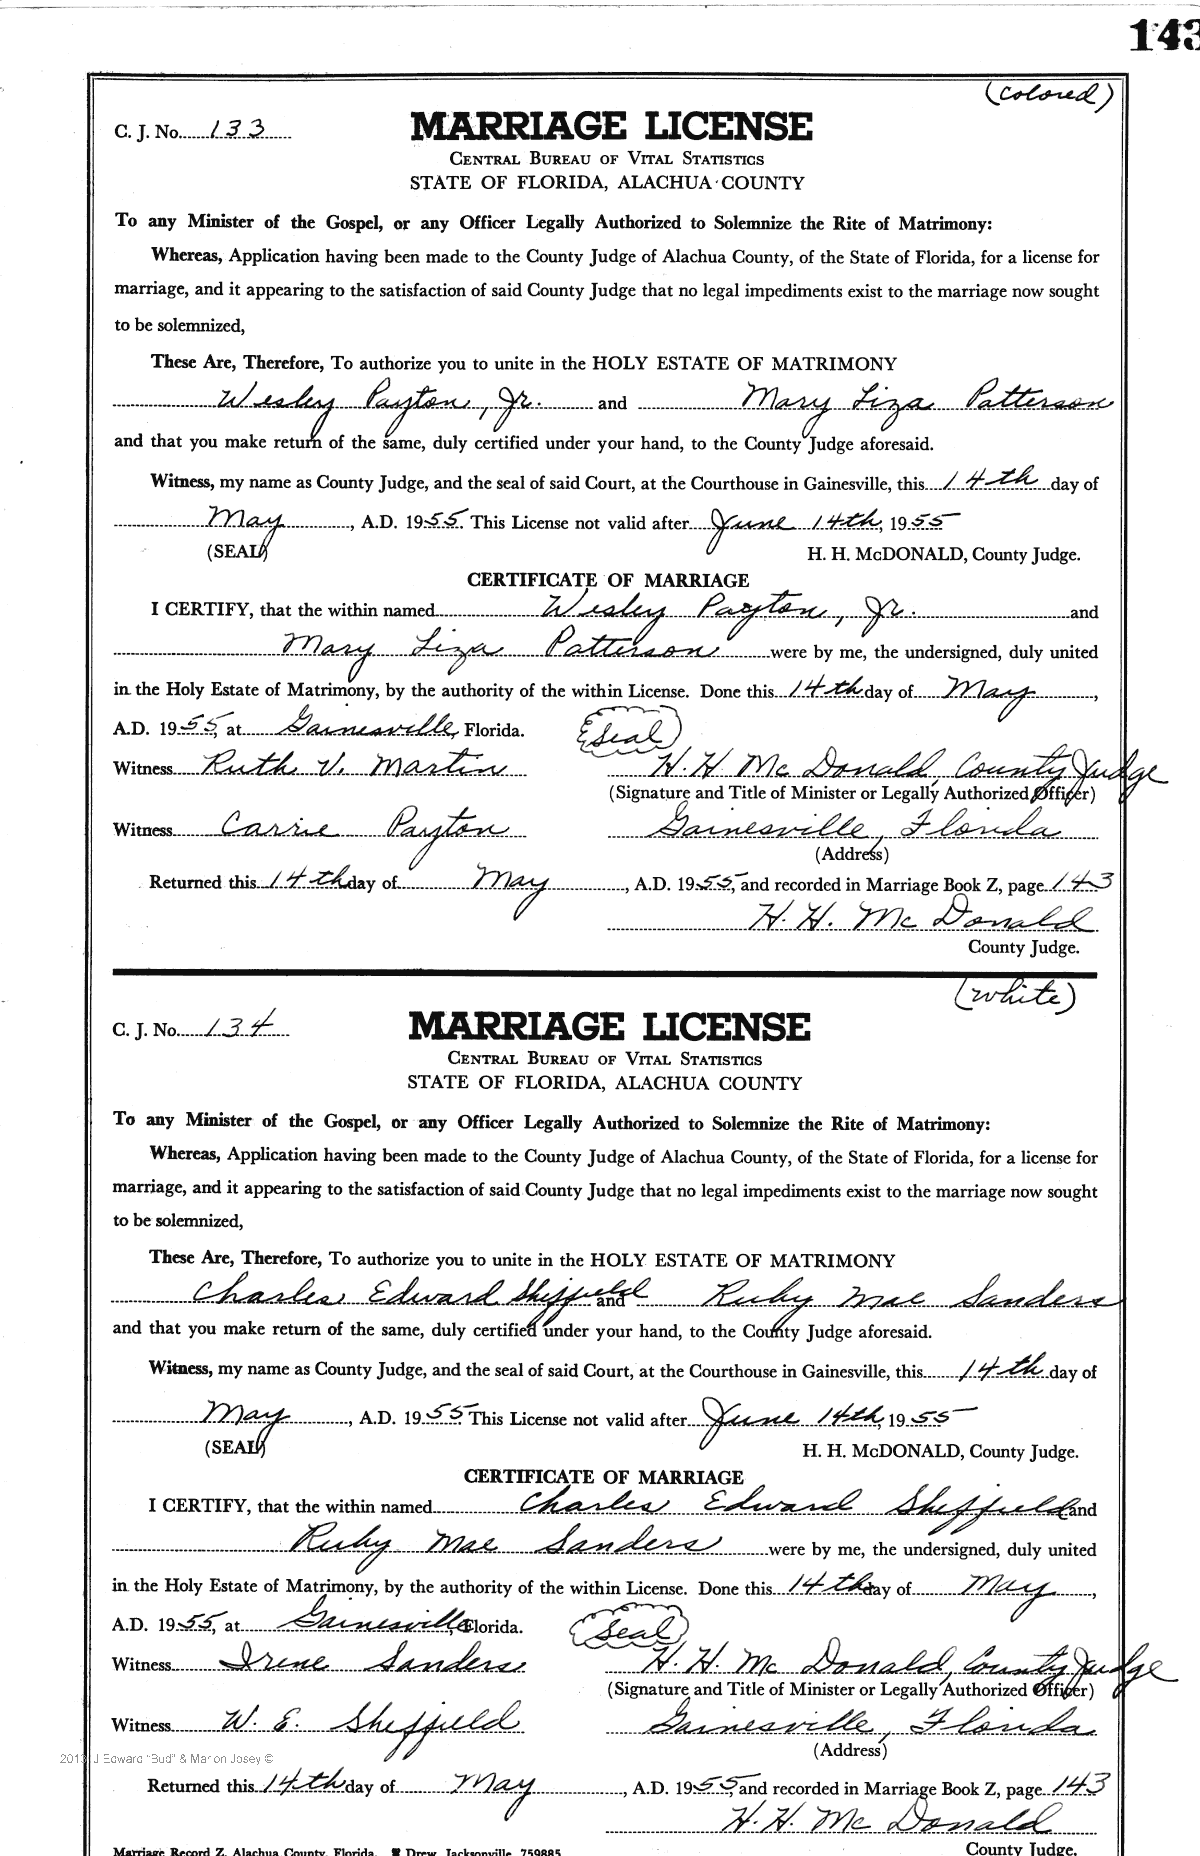 143
(colored)
C. J. No. 133
MARRIAGE LICENSE
CENTRAL BUREAU OF VITAL STATISTICS
STATE OF FLORIDA, ALACHUA COUNTY
To any Minister of the Gospel, or any Officer Legally Authorized to Solemnize the Rite of Matrimony:
Whereas, Application having been made to the County Judge of Alachua County, of the State of Florida, for a license for
marriage, and it appearing to the satisfaction of said County Judge that no legal impediments exist to the marriage now sought
to be solemnized,
These Are, Therefore, To authorize you to unite in the HOLY ESTATE OF MATRIMONY
Wesley Payton, Jr. and Mary Liza Patterson
and that you make return of the same, duly certified under your hand, to the County Judge aforesaid.
Witness, my name as County Judge, and the seal of said Court, at the Courthouse in Gainesville, this 14th day of
May, A.D. 1955. This License not valid after June 14th, 1955
(SEAL) H. H. McDONALD, County Judge.
CERTIFICATE OF MARRIAGE
I CERTIFY, that the within named Wesley Payton, Jr. and
Mary Liza Patterson were by me, the undersigned, duly united
in the Holy Estate of Matrimony, by the authority of the within License. Done this 14th day of May,
A.D. 1955, at Gainesville, Florida. Seal
Witness Ruth V. Martin H. H. Mc Donald, County Judge
(Signature and Title of Minister or Legally Authorized Officer)
Witness Carrie Payton Gainesville, Florida
(Address)
Returned this 14th day of May, A.D. 1955, and recorded in Marriage Book Z, page 143
H. H. Mc Donald
County Judge.
(white)
C. J. No. 134
MARRIAGE LICENSE
CENTRAL BUREAU OF VITAL STATISTICS
STATE OF FLORIDA, ALACHUA COUNTY
To any Minister of the Gospel, or any Officer Legally Authorized to Solemnize the Rite of Matrimony:
Whereas, Application having been made to the County Judge of Alachua County, of the State of Florida, for a license for
marriage, and it appearing to the satisfaction of said County Judge that no legal impediments exist to the marriage now sought
to be solemnized,
These Are, Therefore, To authorize you to unite in the HOLY ESTATE OF MATRIMONY
Charles Edward Sheffield and Ruby Mae Sanders
and that you make return of the same, duly certified under your hand, to the County Judge aforesaid.
Witness, my name as County Judge, and the seal of said Court, at the Courthouse in Gainesville, this 14th day of
May, A.D. 1955 This License not valid after June 14th, 1955
(SEAL) H. H. McDONALD, County Judge.
CERTIFICATE OF MARRIAGE
I CERTIFY, that the within named Charles Edward Sheffield and
Ruby Mae Sanders were by me, the undersigned, duly united
in the Holy Estate of Matrimony, by the authority of the within License. Done this 14th day of May,
A.D. 1955, at Gainesville, Florida. Seal
Witness Irene Sanders H. H. Mc Donald, County Judge
(Signature and Title of Minister or Legally Authorized Officer)
Witness W. E. Sheffield Gainesville, Florida
(Address)
2013 J Edward "Bud" & Marion Josey ©
Returned this 14th day of May, A.D. 1955, and recorded in Marriage Book Z, page 143
H. H. Mc Donald
County Judge.
Marriage Record Z, Alachua County, Florida. Drew, Jacksonville 759885